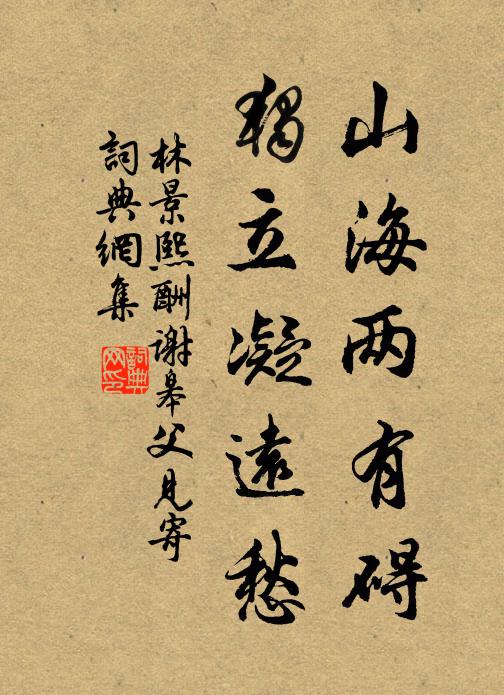 山海两有碍
獨立凝遠愁
林景熙酬谢皋父見寄
詞典網集
詞典網印